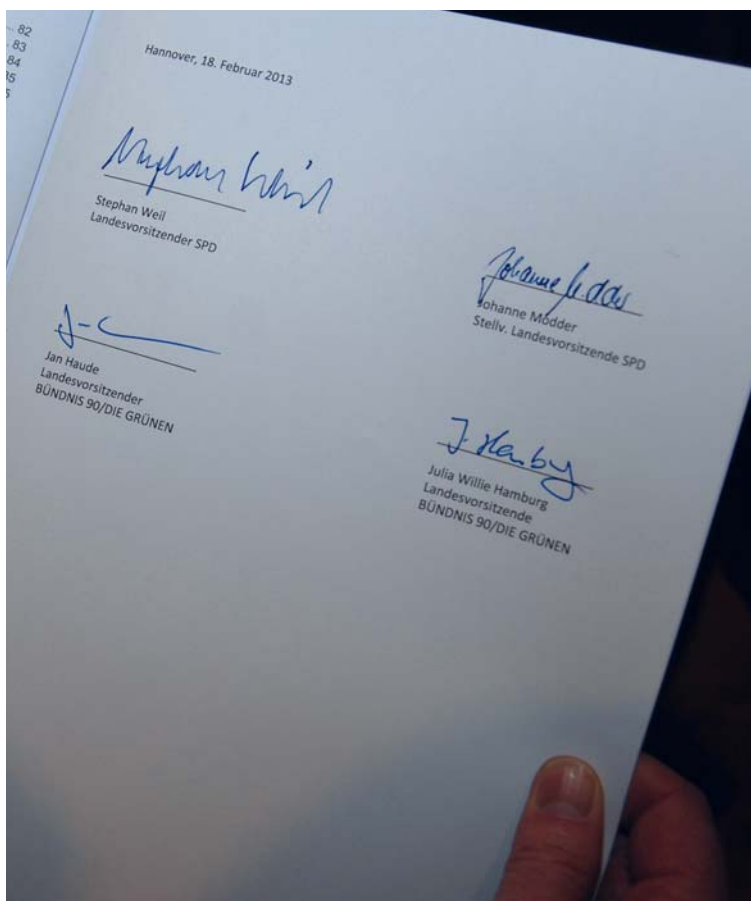 82
83
84
Hannover, 18. Februar 2013
Stephan Weil
Stephan Weil
Landesvorsitzender SPD
Johanne Modder
Johanne Modder
Stellv. Landesvorsitzende SPD
Jan Haude
Landesvorsitzender
BÜNDNIS 90/DIE GRÜNEN
J. Hamburg
Julia Willie Hamburg
Landesvorsitzende
BÜNDNIS 90/DIE GRÜNEN